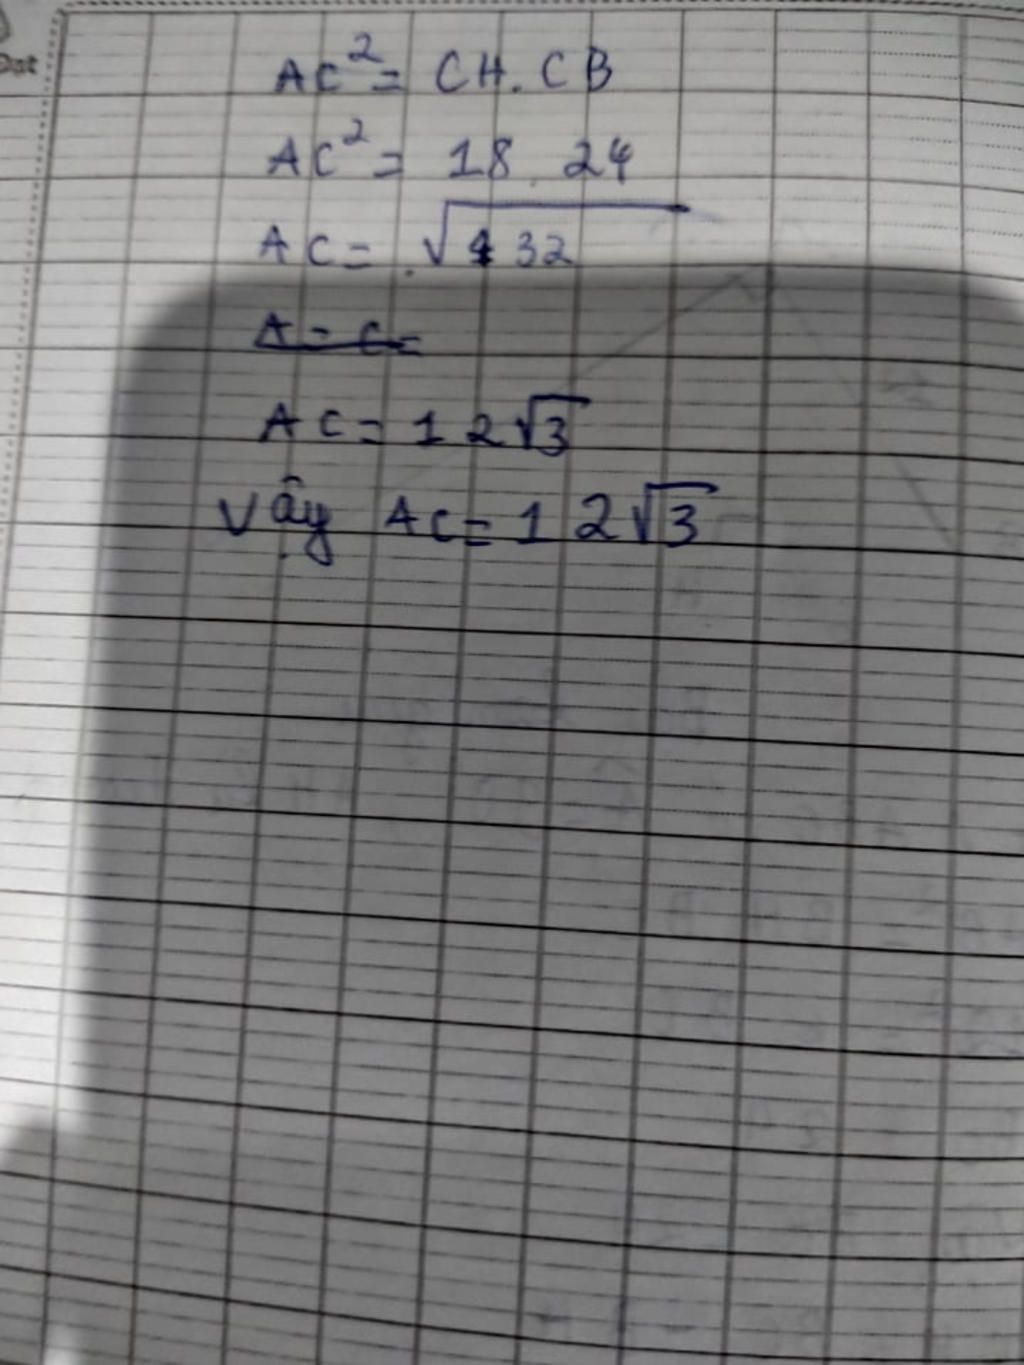 AC² = CH. CB
AC² = 18 . 24
AC = √432
A = C =
AC = 12√3
Vậy AC = 12√3